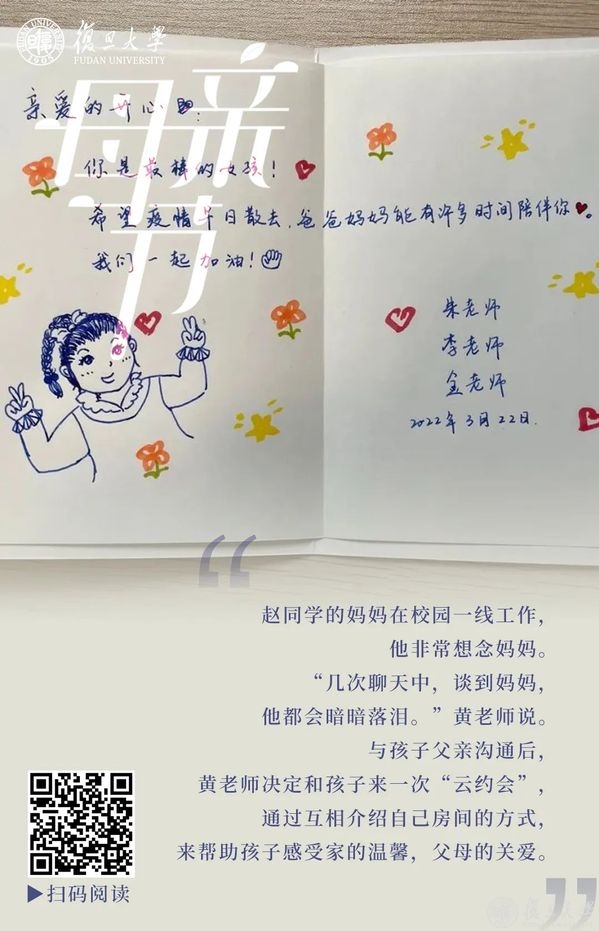 復旦大學
FUDAN UNIVERSITY
1905
母亲节
亲爱的开心
你是最棒的女孩!
希望疫情早日散去,爸爸妈妈能有许多时间陪伴你。
我们一起加油!
朱老师
李老师
金老师
2022年3月22日.
“
赵同学的妈妈在校园一线工作,
他非常想念妈妈。
“几次聊天中,谈到妈妈,
他都会暗暗落泪。”黄老师说。
与孩子父亲沟通后,
黄老师决定和孩子来一次“云约会”,
通过互相介绍自己房间的方式,
来帮助孩子感受家的温馨,父母的关爱。
▶扫码阅读
”
復旦大學